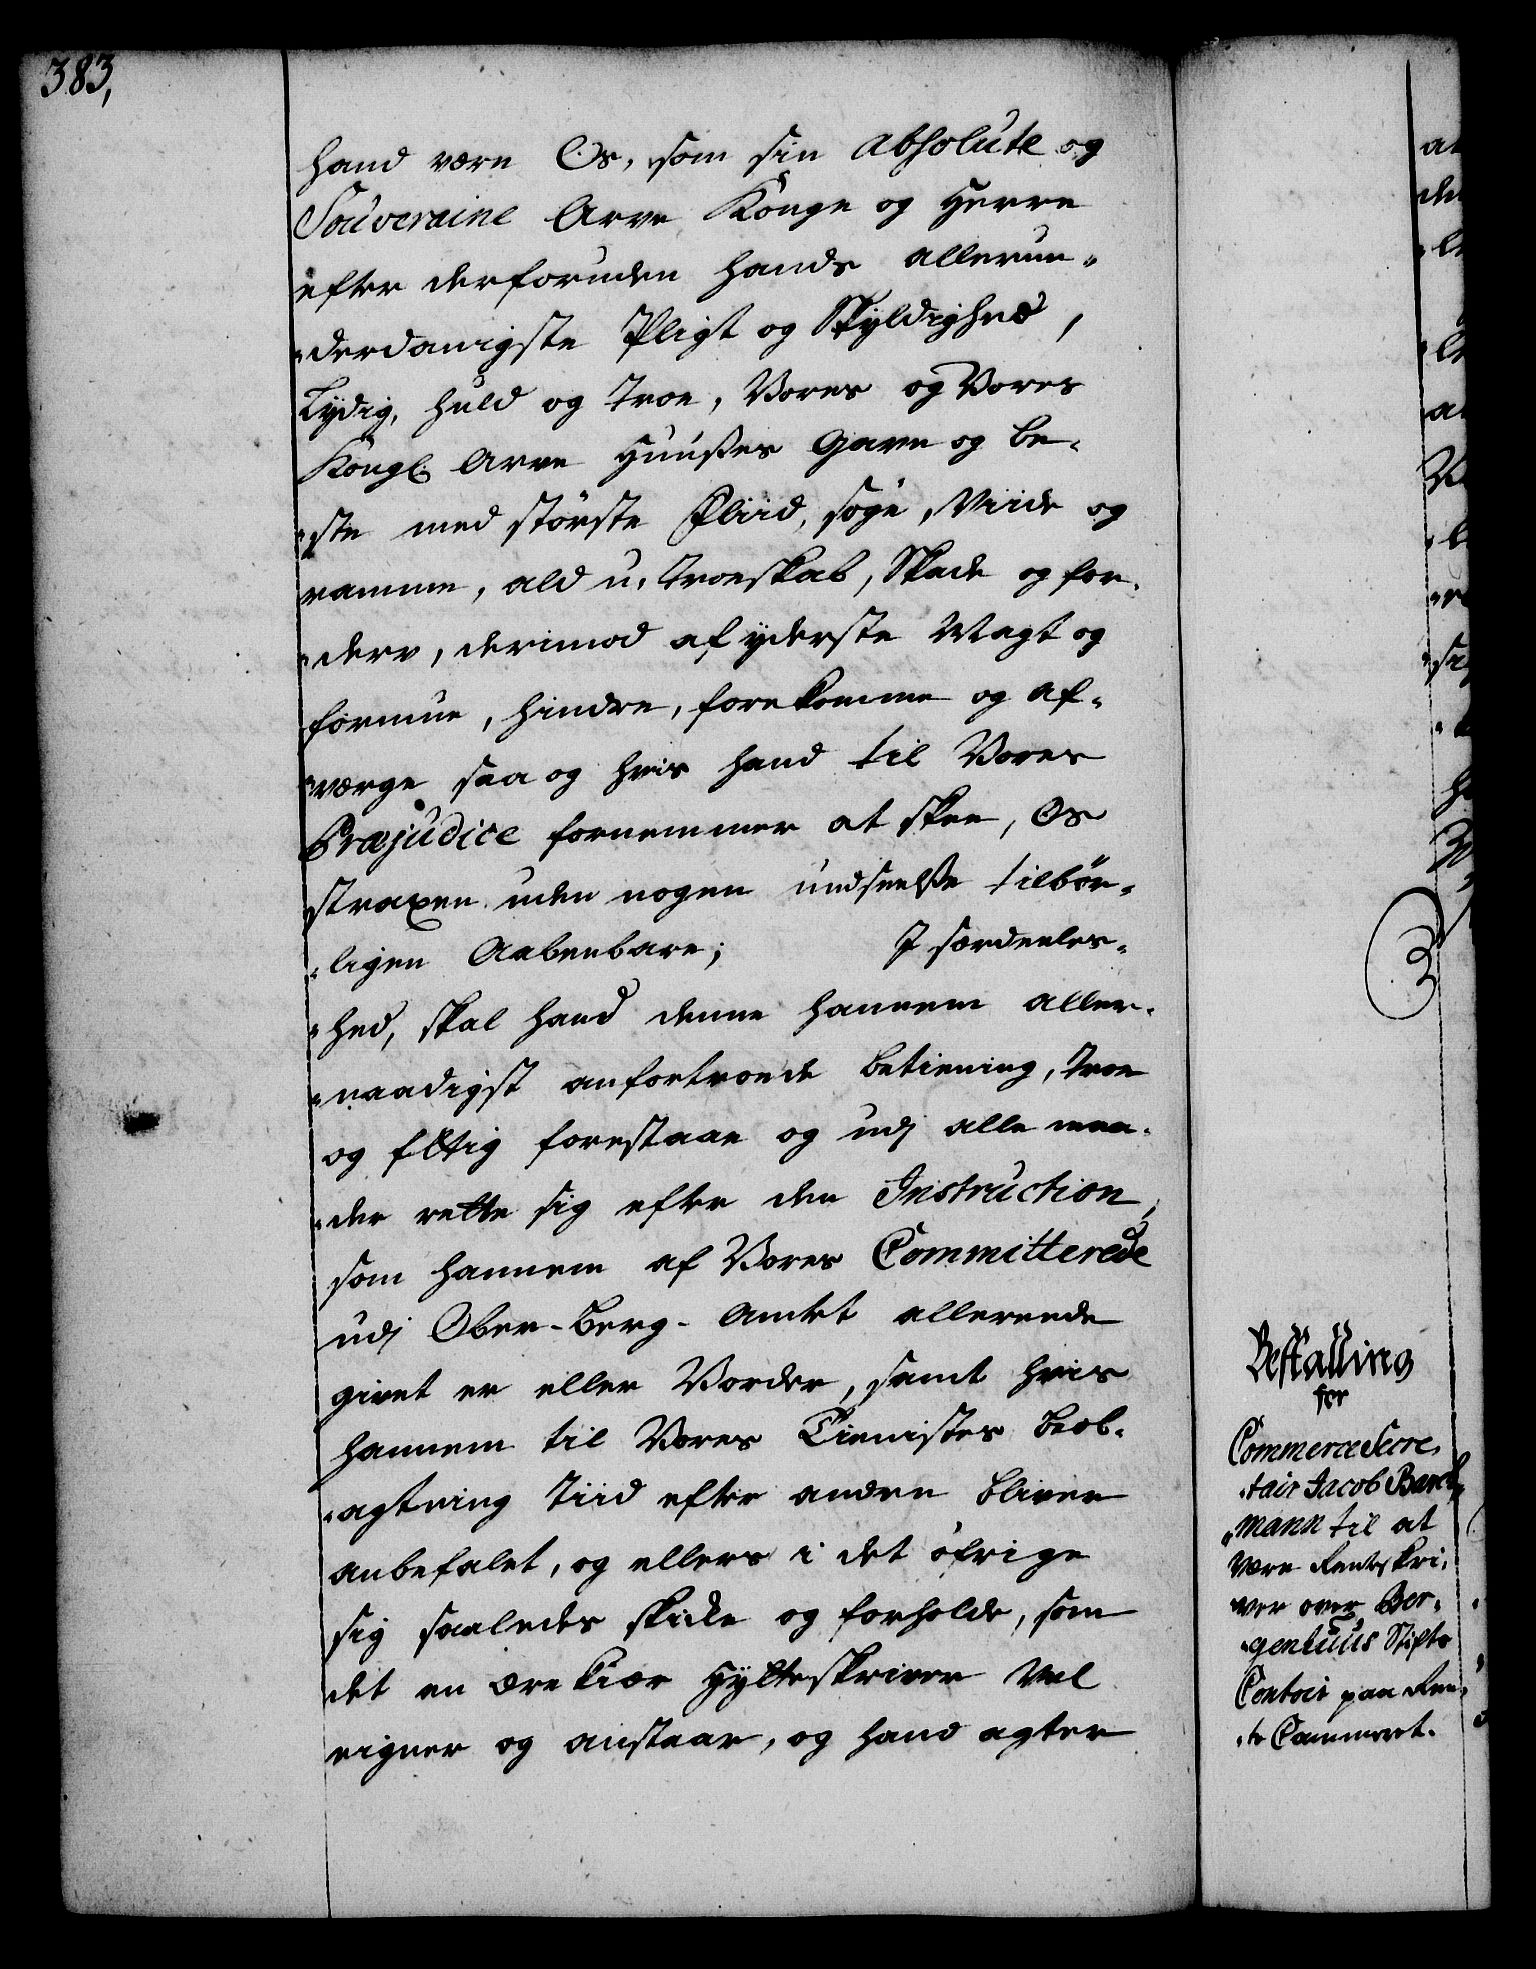 383,
hand være Os, som sin absolute og
Souveraine Arve Konge og Herre
efter derforuden hands allerun-
-derdanigste Pligt og Skyldighed,
Lydig, huld og troe, Vores og Vores
Kongl. Arve Huuses Gavn og be-
-ste med største Fliid, søge, Viide og
ramme, ald u-troeskab, Skade og for-
-derv, derimod af yderste Magt og
formue, hindre, forekomme og af-
-værge saa og hvis hand til Vores
Præjudice fornemmer at skee, Os
straxen uden nogen undseelse tilbør-
-ligen Aabenbare; I særdeeles-
-hed, skal hand denne hannem aller-
-naadigst anfortroede betiening, troe
og flittig forestaae og udj alle maa-
-der rette sig efter den Instruction,
som hannem af Vores Committerede
udj Ober-Berg-Amtet allereede
givet er eller Vorder, samt hvis
hannem til Vores Tienistes beob-
-agtning Tiid efter anden bliver
anbefalet, og ellers i det øfrige
sig saaledes skicke og forholde, som
det en ærekiær Hytteskriver Vel
eigner og anstaar, og hand agter
Bestalling
for
Commerce Secre-
-tair Jacob Bench-
-mann til at
være Renteskri-
ver over Ber-
-genhuus Stifts
Contoir paa Ren-
-te Cammeret.